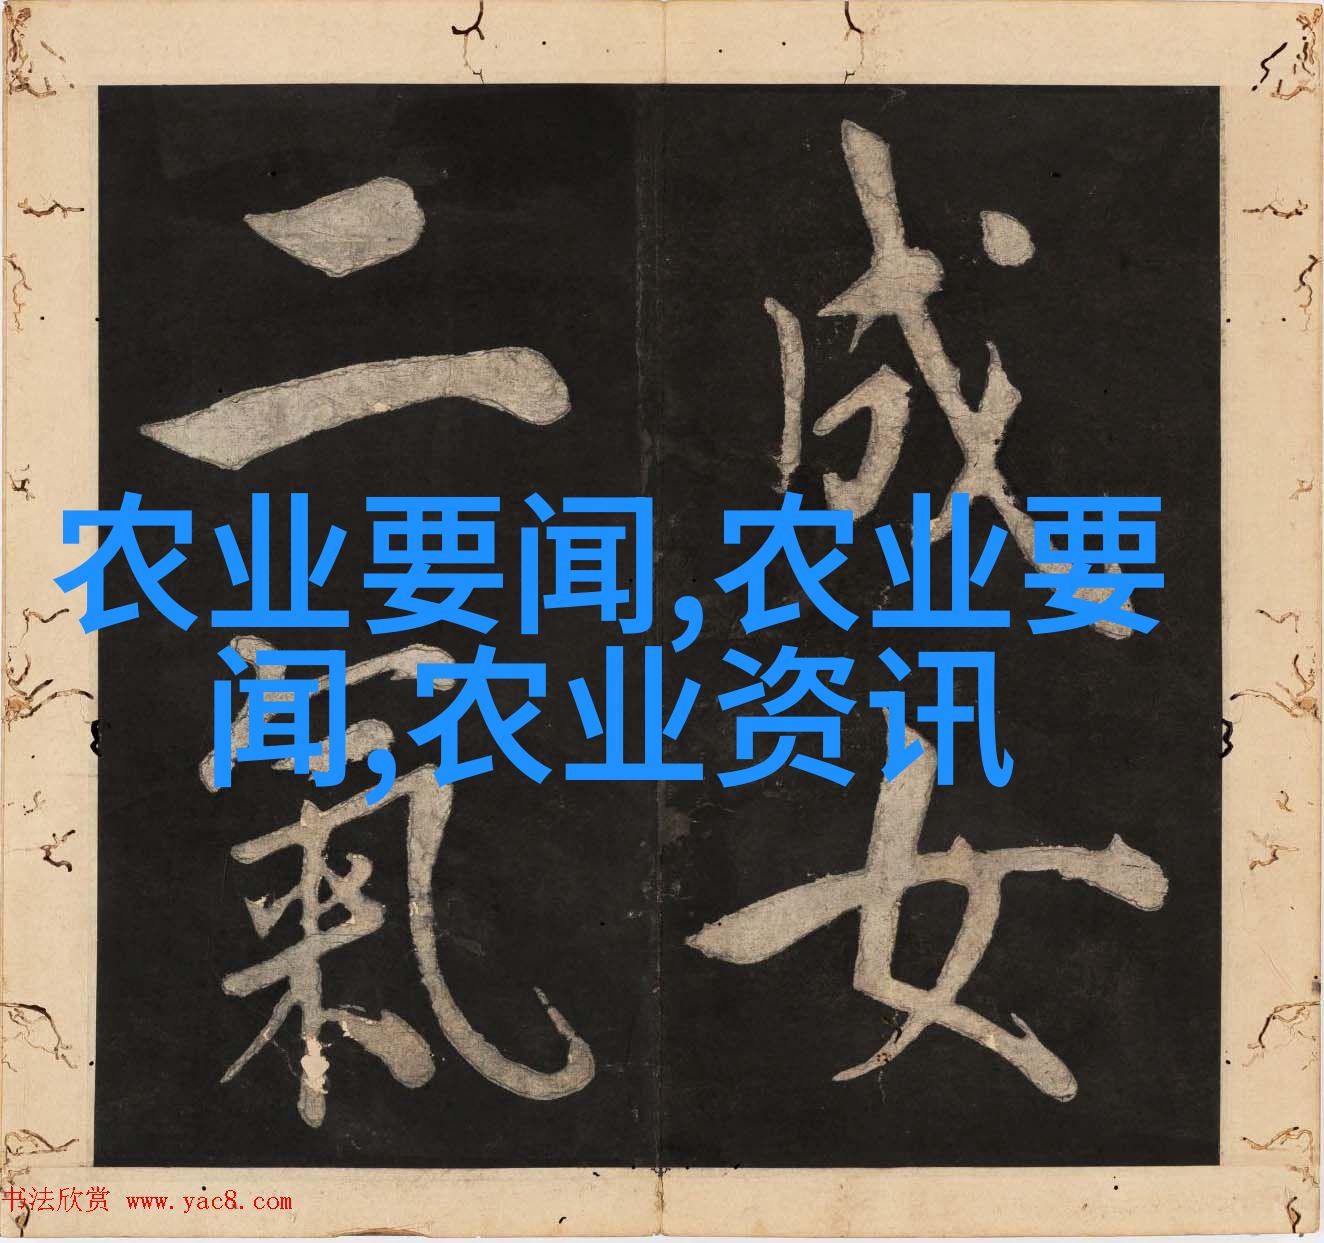 成女
二氣
农业要闻,农业要
闻,农业资讯
书法欣赏 www.yac8.com